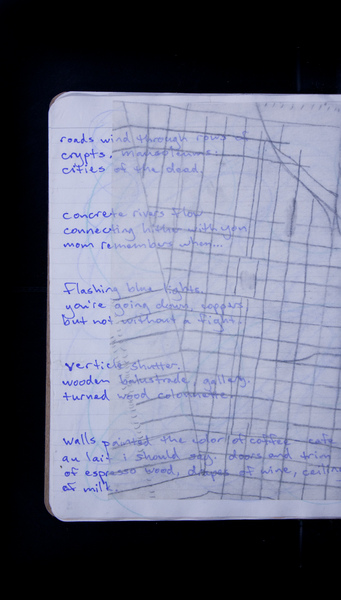 roads wind through rows of
crypts, mausoleums,
cities of the dead.
concrete rivers flow
connecting hither with yon
mom remembers when...
flashing blue lights.
you're going down, coppers,
but not without a fight.
verticle shutter.
wooden balustrade gallery.
turned wood colonnette.
walls painted the color of coffee - cafe
au lait i should say. doors and trim
of espresso wood, drapes of wine, ceiling
of milk.